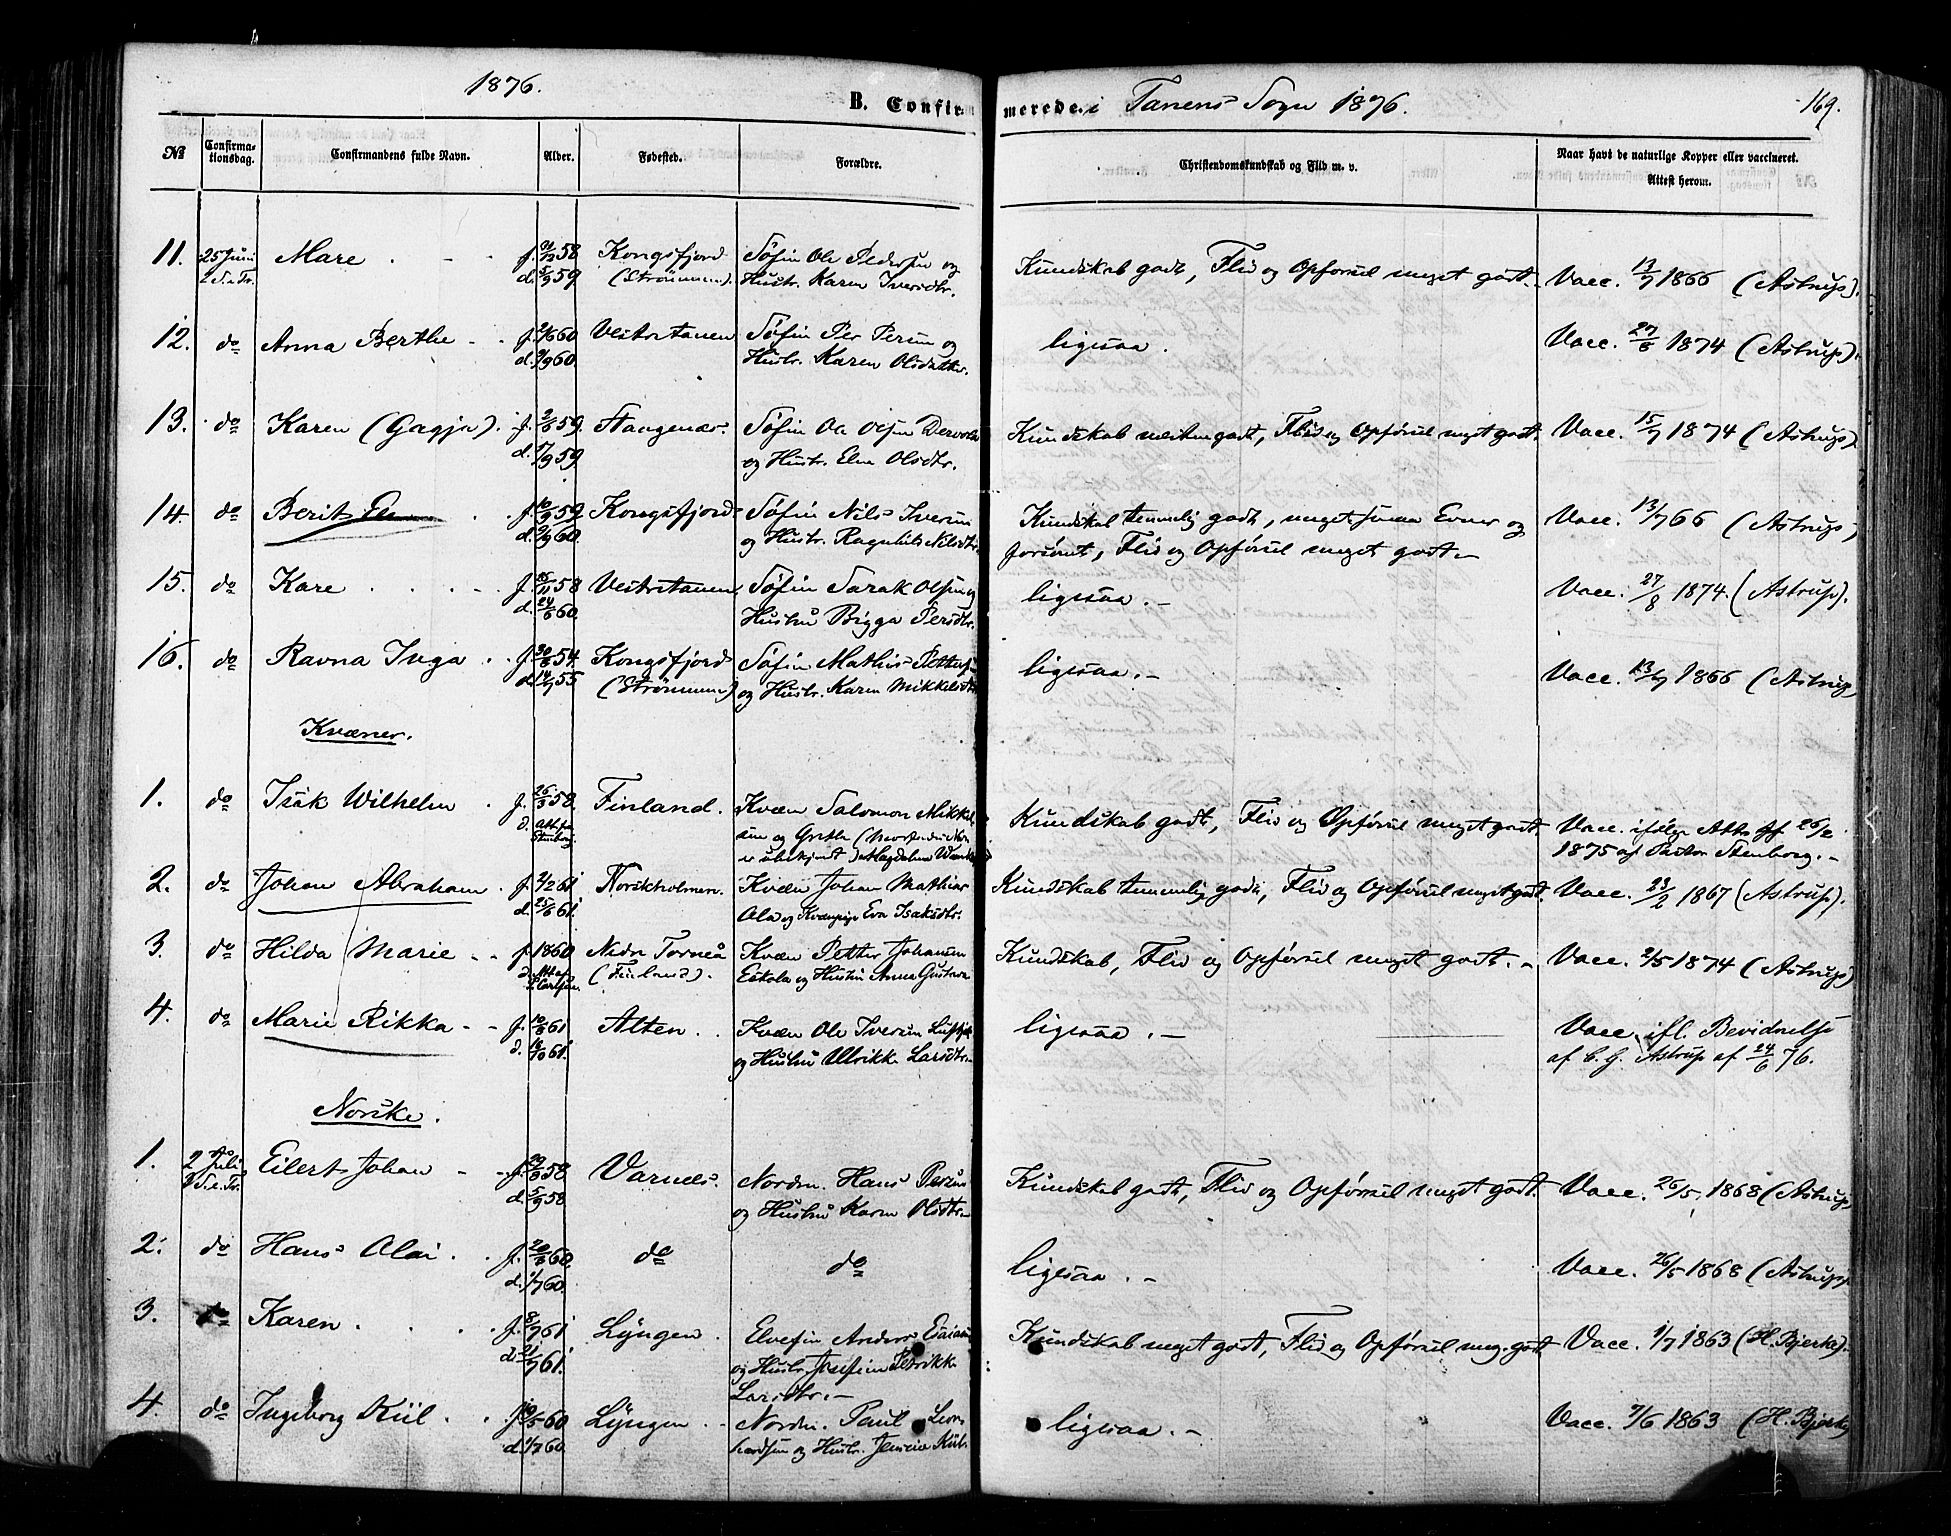 1876.
B. Confirmerede i Tanens Sogn 1876.
169.
№
Confirmationsdag.
Confirmandens fulde Navn.
Alder.
Fødested.
Forældre.
Christendomskundskab og Flid m. v.
Naar havt de naturlige Kopper eller vaccineret. Attest herom.
11. 25 Juni Mare f. 58 Kongsfjord Søfin Ole Pedersen og Kundskab godt, Flid og Opførsel meget godt. Vacc. 13/7 1866 (Astrup).
2 S. e. Tr. d. 3/9 59 (Strömmen). Hustr. Karen Iversdtr.
12. do Anna Berthe f. 60 Vestertanen Søfin Per Persen og ligesaa. Vacc. 27/8 1874 (Astrup).
d. 2/9 60. Hustr. Karen Olsdatter.
13. do Karen (Gagja). f. 59. Stangenæs. Søfin Ole Olsen Kundskab meget godt, Flid og Opførsel meget godt. Vacc. 15/7 1874 (Astrup)
d. 59. og Hustr. Elen Olsdtr.
14. do Berit Elen f. 59. Kongsfjord Søfin Nils Iversen Kundskab temmelig godt, meget Evner og Vacc. 13/7 66 (Astrup)
d. 2/9 60. og Hustr. Ragnhild Nilsdtr. forsömt, Flid og Opførsel meget godt.
15. do Kare f. 58 Vestertanen Søfin Sarak Olsen og ligesaa. Vacc. 27/8 1874. (Astrup).
d. 24/6 60. Hustru Bigga Persdtr.
16. do Ravna Inga f. 54. Kongsfjord Søfin Mathis Pettersen ligesaa. Vacc. 13/7 1866 (Astrup)
d. 55 (Strömmen) og Hustr. Karen Mikkelsdtr
Kvæner.
1. do Isak Wilhelm f. 26/3 58. Finland. Kvæn Salomon Mikkel- Kundskab godt, Flid og Opførsel meget godt Vacc. ifølge Att. af 26/2
d. Att. fra Stenborg sen og Gretha (hvorfra er ubekjent) Magdalena 1875 af Pastor Stenborg.
2. do Johan Abraham f. 61 Norskholmen. Kvæn Johan Mathias Kundskab temmelig godt, Flid og Opførsel meget godt. Vacc. 23/2 1867 (Astrup).
d. 25/6 61. Ala og Kvænpige Eva Isaksdtr.
3. do Hilda Marie f. 1860 Nedre Torneå Kvæn Petter Johansen Kundskab, Flid og Opførsel meget godt. Vacc. 2/5 1874 (Astrup)
d. Att. af P. Carlsen. (Finland). Eskola og Hustru Anna Gustava
4. do Marie Rikka f. 61 Alten. Kvæn Ole Iversen ligesaa. Vacc. ifl. Bevidnelse
d. 61. og Hustru Ulrikke Larsdtr. af C. G. Astrup af 24/6 76.
Norske.
1. 2 Juli Eilert Johan f. 58. Varnæs. Nordm. Hans Persen Kundskab godt, Flid og Opførsel meget godt. Vacc. 26/5 1868 (Astrup)
3 S. e. Tr. d. 5/9 58. og Hustru Karen Olsdtr.
2. do Hans Olai f. 20/3 60. do do ligesaa. Vacc. 26/5 1868 (Astrup)
d. 1/7 60.
3. do Karen f. 8/7 61 Lyngen. Elvefin Anders Esaiasen Kundskab meget godt, Flid og Opførsel meg. godt Vacc. 1/7 1863 (H. Bjerke).
d. 21/7 61. og Hustr. Josefine Petrikke
Larsdtr.
4. do Ingeborg Kiil f. 60 Lyngen Nordm. Paul Leon- ligesaa. Vacc. 7/6 1863 (H. Bjerke)
d. 1/7 60. hardsen og Hustr. Kiil